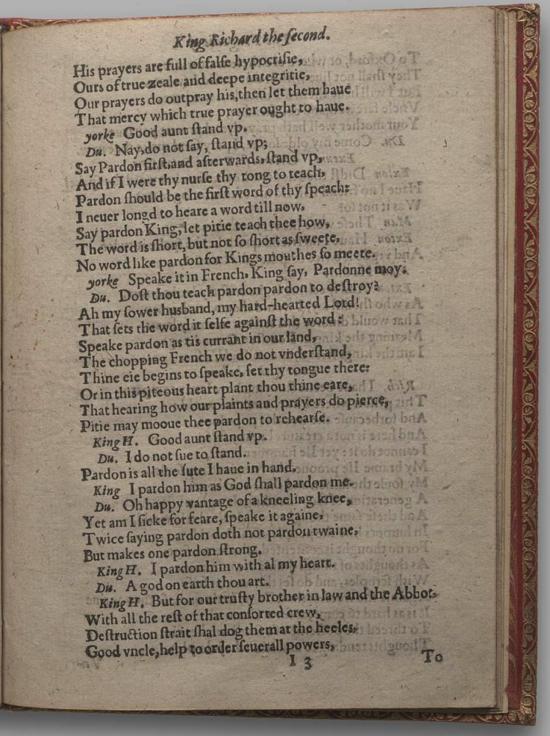 King Richard the second.
His prayers are full of false hypocrisie,
Ours of true zeale and deepe integritie,
Our prayers do outpray his, then let them haue
That mercy which true prayer ought to haue.
yorke Good aunt stand vp.
Du. Nay, do not say, stand vp;
Say Pardon first, and afterwards, stand vp,
And if I were thy nurse thy tong to teach,
Pardon should be the first word of thy speach:
I neuer longd to heare a word till now,
Say pardon King, let pitie teach thee how,
The word is short, but not so short as sweete,
No word like pardon for Kings mouthes so meete.
yorke Speake it in French, King say, Pardonne moy.
Du. Dost thou teach pardon pardon to destroy?
Ah my sower husband, my hard-hearted Lord!
That sets the word it selfe against the word:
Speake pardon as tis currant in our land,
The chopping French we do not vnderstand,
Thine eie begins to speake, set thy tongue there:
Or in this piteous heart plant thou thine eare,
That hearing how our plaints and prayers do pierce,
Pitie may mooue thee pardon to rehearse.
King H. Good aunt stand vp.
Du. I do not sue to stand.
Pardon is all the sute I haue in hand.
King I pardon him as God shall pardon me.
Du. Oh happy vantage of a kneeling knee,
Yet am I sicke for feare, speake it againe,
Twice saying pardon doth not pardon twaine,
But makes one pardon strong.
King H. I pardon him with al my heart.
Du. A god on earth thou art.
King H. But for our trusty brother in law and the Abbot,
With all the rest of that consorted crew,
Destruction strait shal dog them at the heeles,
Good vncle, help to order seuerall powers,
I 3
To